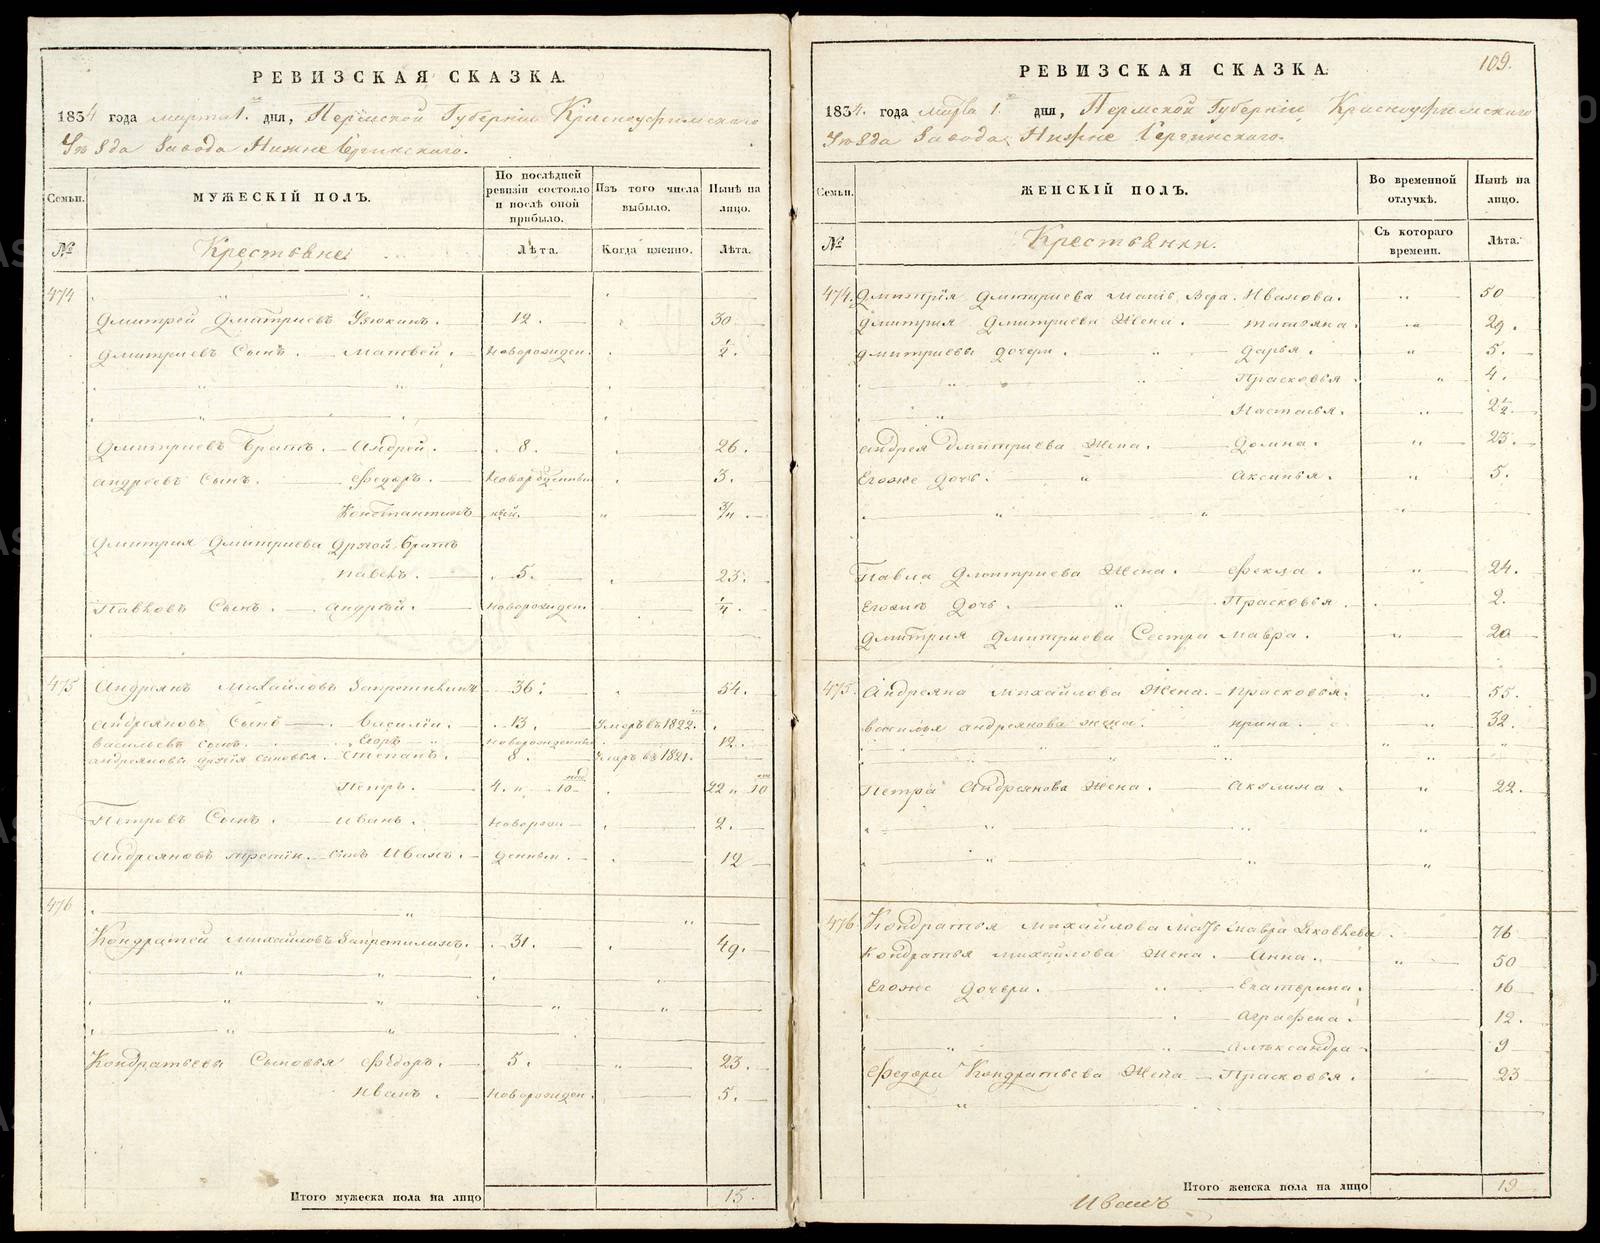 РЕВИЗСКАЯ СКАЗКА.
1834 года марта 1. дня, Пермской Губернии Красноуфимскаго
Уѣзда Завода Нижне Сергинскаго.
Семьи.
МУЖЕСКІЙ ПОЛЪ.
По послѣдней ревизіи состояло и послѣ оной прибыло.
Изъ того числа выбыло.
Нынѣ на лицо.
№
Крестьяне
Лѣта.
Когда именно.
Лѣта.
474
Дмитрей Дмитриевъ Узюкинъ. 12. 30
Дмитриевъ Сынъ. Матвей. Новорожден. ½.
Дмитриевъ Братъ. Андрей. 8. 26.
Андреевъ Сынъ. Федоръ. Новорожденны 3.
Константинъ 3/4.
Дмитрия Дмитриева другой Братъ
Павелъ. 5. 23.
Павловъ Сынъ. Андрей. Новорожден. ¼.
475 Андреянъ Михайловъ 36. 54.
Андреяновъ Сынъ Василии. 13. Умеръ въ 1822.
Васильевъ сынъ. Егоръ Новорожденны 12.
Андреяновы другия сыновья. Степанъ. 8. Умеръ въ 1821.
Петръ. 4. 10 22 10
Петровъ Сынъ. Иванъ. Новорож 2.
Андреяновъ третій. сынъ Иванъ. денным. 12
476
Кондратей Михайловъ 31. 49.
Кондратьевы Сыновья Фёдоръ. 5. 23.
Иванъ. Новорожден. 5.
Итого мужеска пола на лицо 15.
109.
РЕВИЗСКАЯ СКАЗКА.
1834. года марта 1. дня, Пермской Губерніи, Красноуфимскаго
Уѣзда Завода Нижне Сергинскаго.
Семьи.
ЖЕНСКІЙ ПОЛЪ.
Во временной отлучкѣ.
Нынѣ на лицо.
№
Крестьянки.
Съ котораго времени.
Лѣта.
474. Дмитрія Дмитриева Мать Вера. Иванова. 50
Дмитрия Дмитриева Жена. Татьяна. 29.
Дмитриевы дочери. Дарья. 5.
Прасковья 4.
Настасья. 2½.
Андрея Дмитриева Жена. Домна. 23.
Егоже дочь. Аксинья. 5.
Павла Дмитриева Жена. Фекла. 24.
Егоже Дочь. Прасковья. 2.
Дмитрия Дмитриева Сестра Мавра. 20
475. Андреяна Михайлова Жена. Прасковья. 55.
Василья Андреянова жена. Ирина. 32.
Петра Андреянова Жена. Акулина. 22.
476 Кондратья Михайлова Мать Мавра Яковлева. 76
Кондратья Михайлова Жена. Анна. 50
Егоже дочери. Екатерина. 16
Аграфена. 12.
Александра 9
Федора Кондратьева Жена Прасковья. 23
Итого женска пола на лицо 19
Иванъ